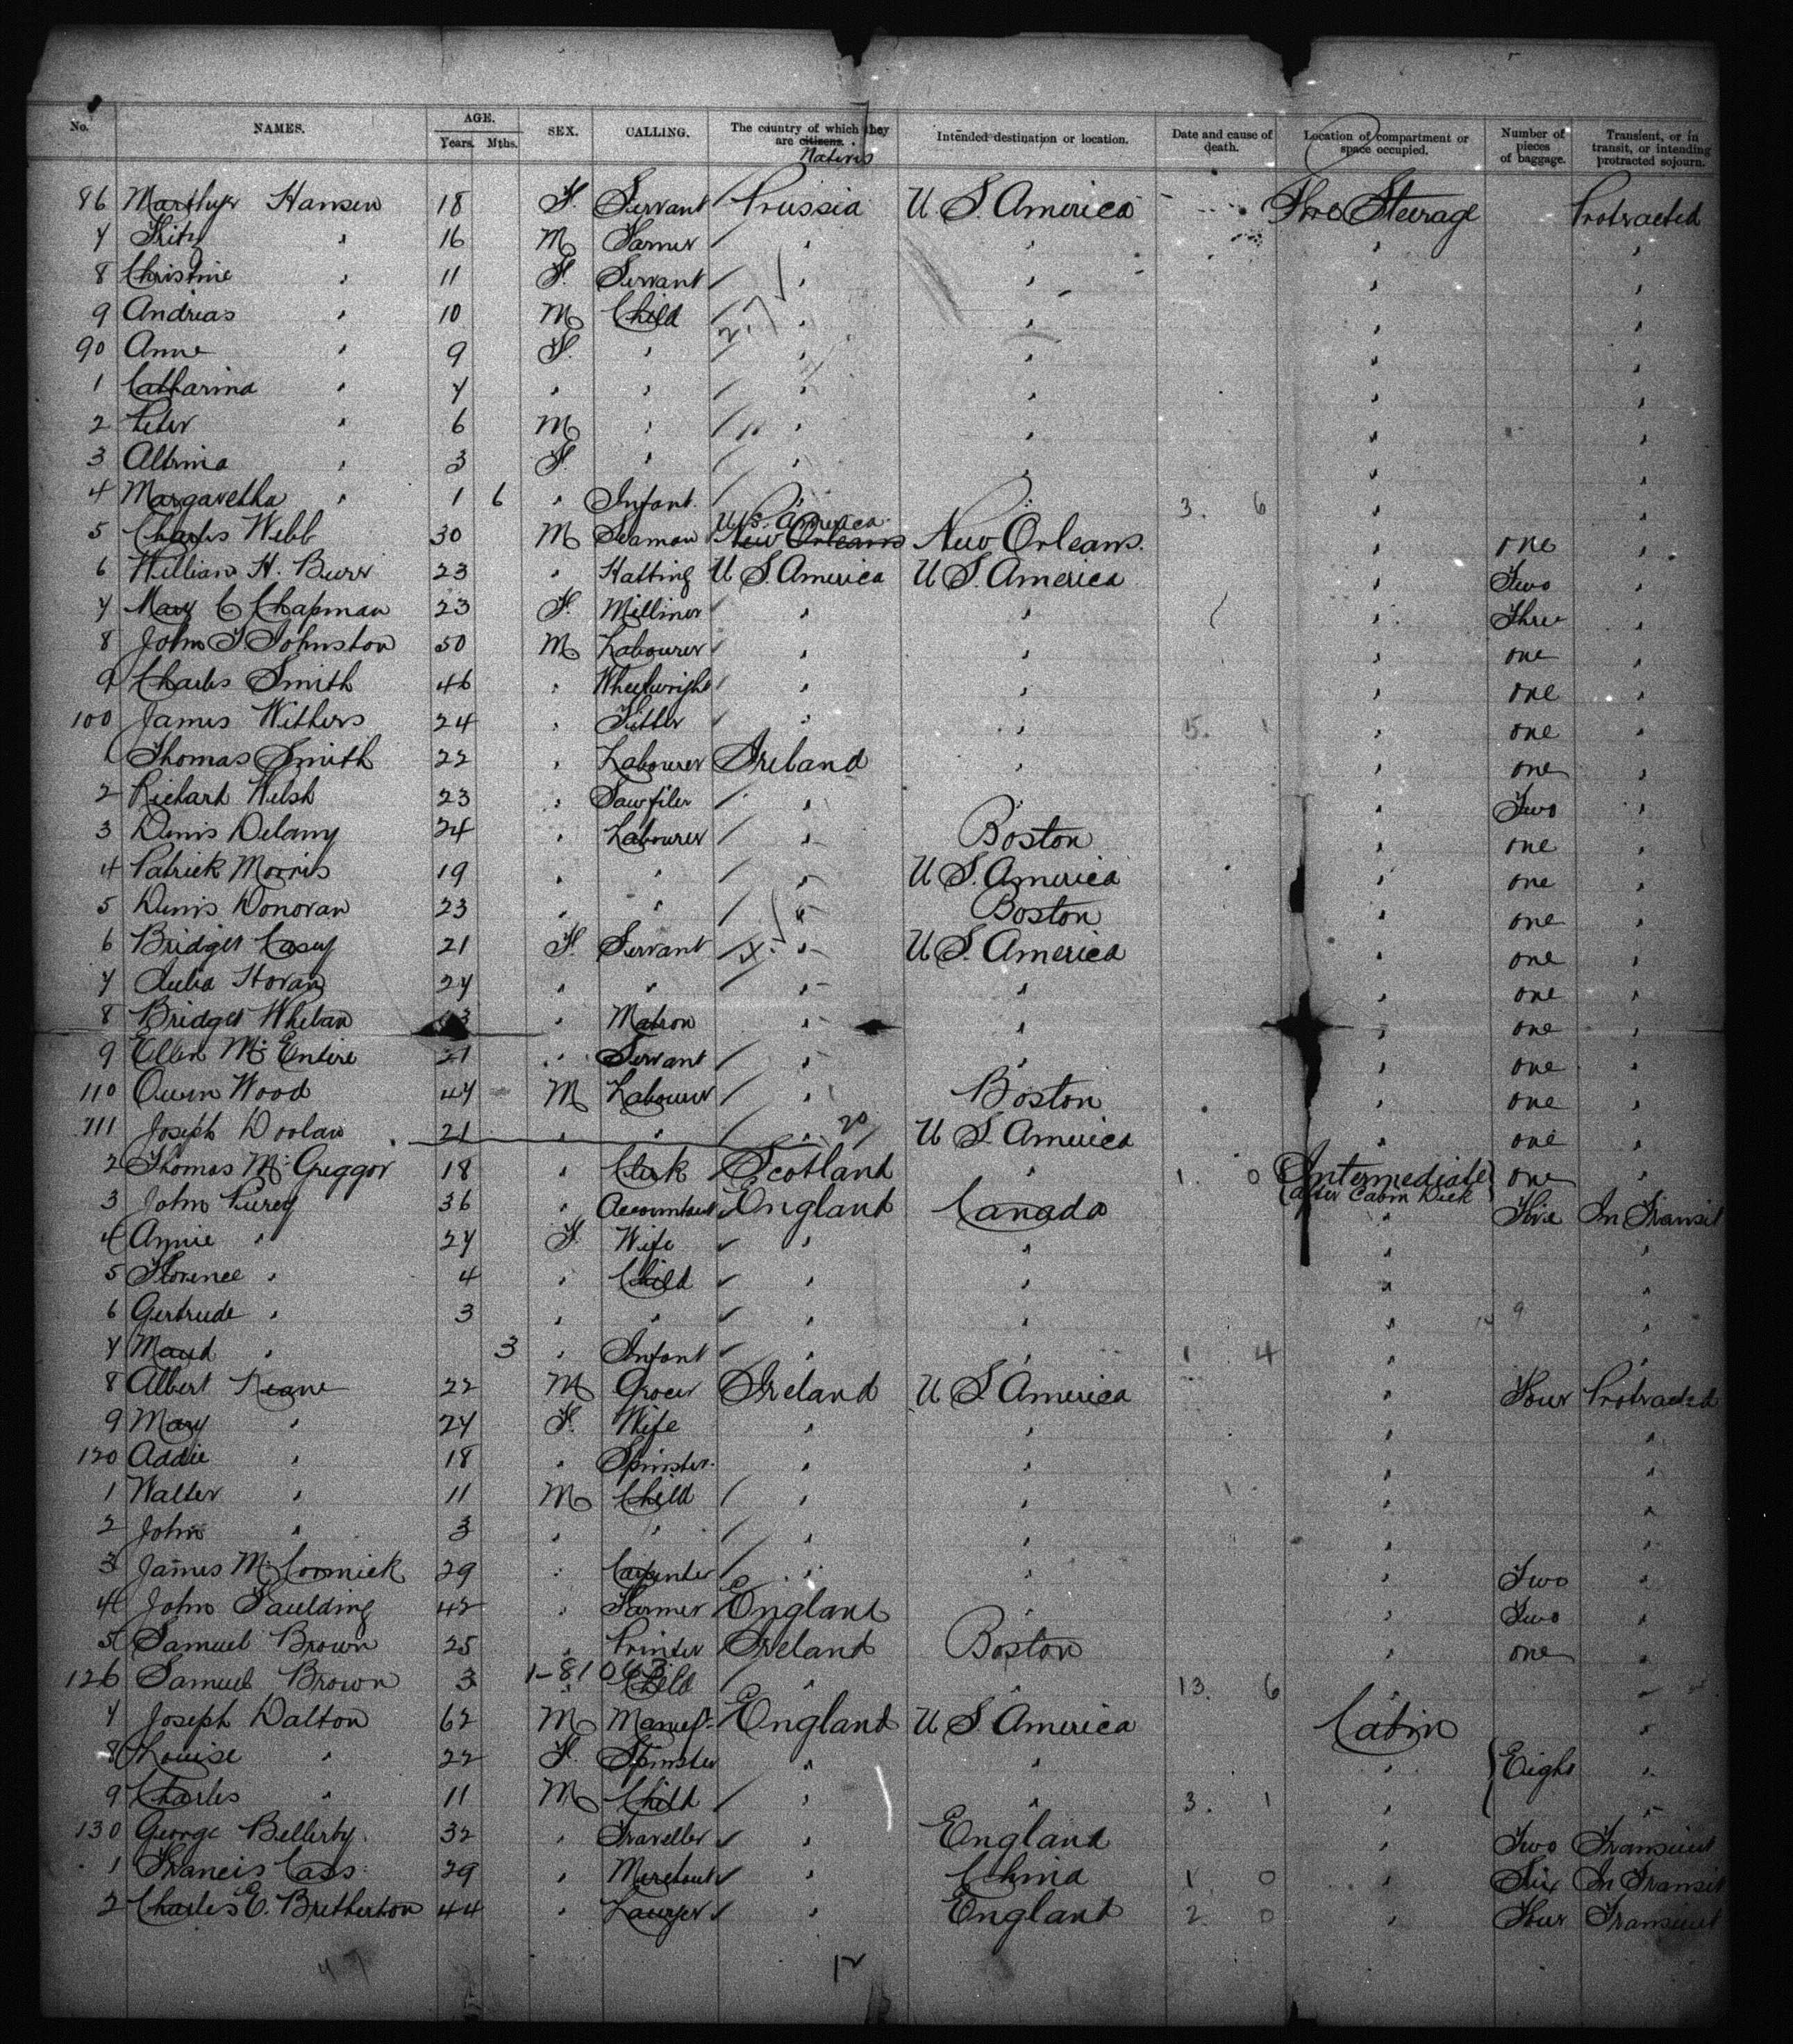 No. NAMES. AGE. Years. Mths. SEX. CALLING. The country of which they are citizens. Natives Intended destination or location. Date and cause of death. Location of compartment or space occupied. Number of pieces of baggage. Transient, or in transit, or intending protracted sojourn.
86 Hansen 18 F. Servant Prussia U S. America Fore Steerage Protracted
7 Fritz " 16 M Farmer " " " "
8 Christine " 11 F. Servant " " " "
9 Andrias " 10 M Child " " " "
90 Anne " 9 F. " " " " "
1 Catharina " 7 " " " " " "
2 Peter " 6 M " " " " "
3 Albina " 3 F. " " " " "
4 Margaretha " 1 6 " Infant. " " 3. 6 " "
5 Charles Webb 30 M Seaman U.S. America New Orleans New Orleans. " one "
6 William H. Burr 23 " Hatting U S. America U S. America " Two "
7 Mary C Chapman 23 F. Milliner " " " Three "
8 John T. Johnston 50 M Labourer " " " one "
9 Charles Smith 46 " Wheelwright " " " one "
100 James Withers 24 " Fitter " " 5. 1 " one "
1 Thomas Smith 22 " Labourer Ireland " " one "
2 Richard Welsh 23 " Sawfiler " " " Two "
3 Denis Delany 24 " Labourer " Boston " one "
4 Patrick Morris 19 " " " U S. America " one "
5 Denis Donovan 23 " " " Boston " one "
6 Bridget Casey 21 F. Servant " U S. America " one "
7 Julia Horan 27 " " " " " one "
8 Bridget Whelan " Matron " " " one "
9 Ellen Mc Entire 21 " Servant " " " one "
110 Owen Wood 47 M Labourer " Boston " one "
111 Joseph Doolan 21 " " " 20 U S. America " one "
2 Thomas Mc Greggor 18 " Clerk Scotland " 1. 0 Intermediate after Cabin Deck one "
3 John Purey 36 " Accountant England Canada " Five In Transit
4 Annie " 27 F. Wife " " " "
5 Florence " 4 " Child " " " "
6 Gertrude " 3 " " " " " 9 "
7 Maud " 3 " Infant " " 1 4 " "
8 Albert Keane 22 M Grocer Ireland U S. America " Four Protracted
9 Mary " 27 F. Wife " " " "
120 Addie " 18 " Spinster. " " " "
1 Walter " 11 M Child " " " "
2 John " 3 " " " " " "
3 James Mc Cormick 29 " Carpenter " " " Two "
4 John Saulding 42 " Farmer England " " Two "
5 Samuel Brown 25 " Printer Ireland Boston " one "
126 Samuel Brown 3 " Child " " 13. 6 " "
7 Joseph Dalton 62 M Manufr. England U S. America Cabin "
8 Louise " 22 F. Spinster " " " Eight "
9 Charles " 11 M Child " " 3. 1 " "
130 George Bellerby. 32 " Traveller " England " Two Transient
1 Francis Cass. 29 " Merchant " China 1 0 " Six In Transit
2 Charles E. Bretherton 44 " Lawyer " England 2 0 " Four Transient
47 12